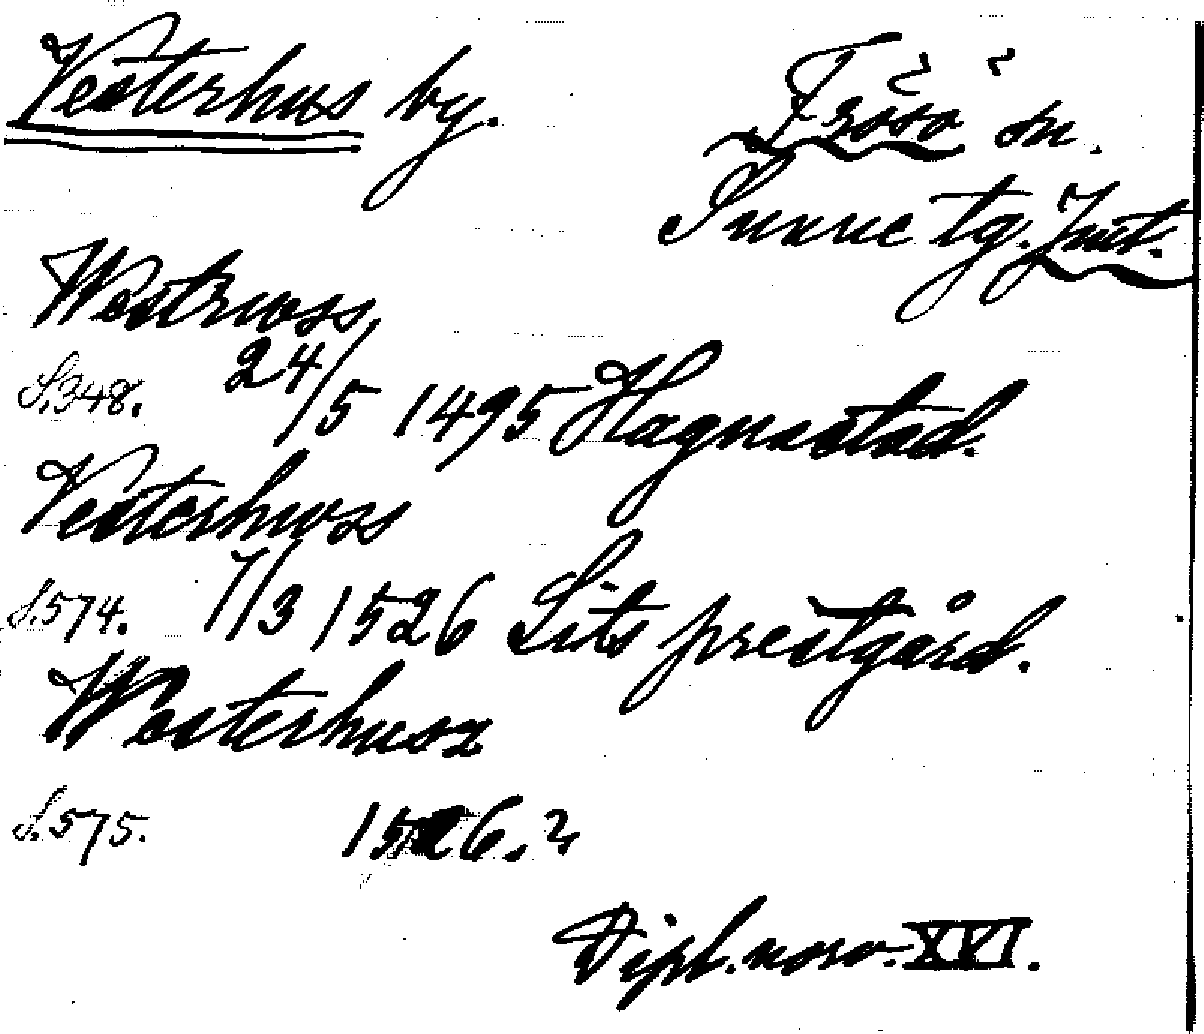 Vesterhus by.
Frösö sn.
Sunne tg. Jmt.
Westruoss
S. 348. 24/5 1495 Hagnastad.
Vesterhwss
S. 574. 7/3 1526 Lits prestgård.
Westerhusz
S. 575. 1526. ?
Dipl. norv. XVI.